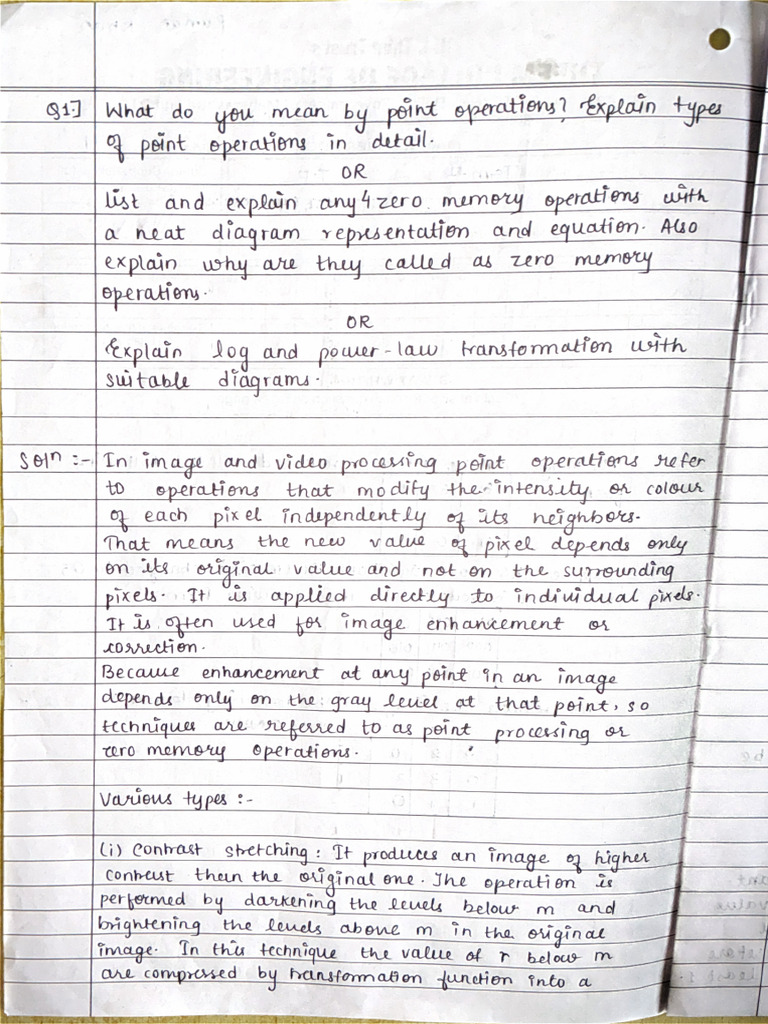 Q1.] What do you mean by point operations? Explain types
of point operations in detail.
OR
List and explain any 4 zero memory operations with
a neat diagram representation and equation. Also
explain why are they called as zero memory
operations.
OR
Explain log and power-law transformation with
suitable diagrams.
Soln :- In image and video processing point operations refer
to operations that modify the intensity or colour
of each pixel independently of its neighbors.
That means the new value of pixel depends only
on its original value and not on the surrounding
pixels. It is applied directly to individual pixels.
It is often used for image enhancement or
correction.
Because enhancement at any point in an image
depends only on the gray level at that point, so
techniques are referred to as point processing or
zero memory operations.
Various types :-
(i) Contrast stretching : It produces an image of higher
contrast than the original one. The operation is
performed by darkening the levels below m and
brightening the levels above m in the original
image. In this technique the value of r below m
are compressed by transformation function into a